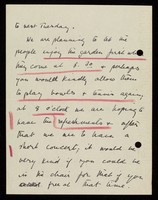 to next Tuesday.
We are planning to let the
people enjoy the garden first when
they come at 8.30 & perhaps
you would kindly allow them
to play bowls & tennis again
at 9 o'clock we are hoping to
have the refreshments & after
that we are to have a
short concert, it would be
very kind if you could be
in the chair for that if you
are free at that time.